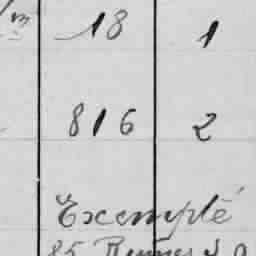 18 1
816 2
Exempté
85